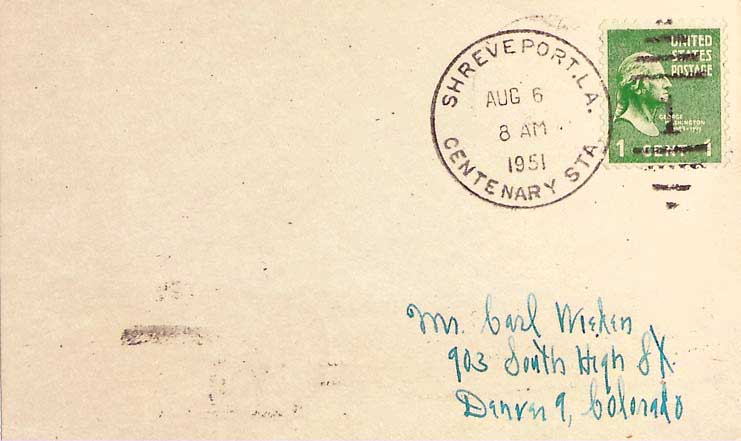 SHREVEPORT, LA.
AUG 6
8 AM
1951
CENTENARY STA.
UNITED
STATES
POSTAGE
GEORGE
WASHINGTON
1 CENT 1
Mr. Carl Wieken
903 South High St.
Denver 9, Colorado